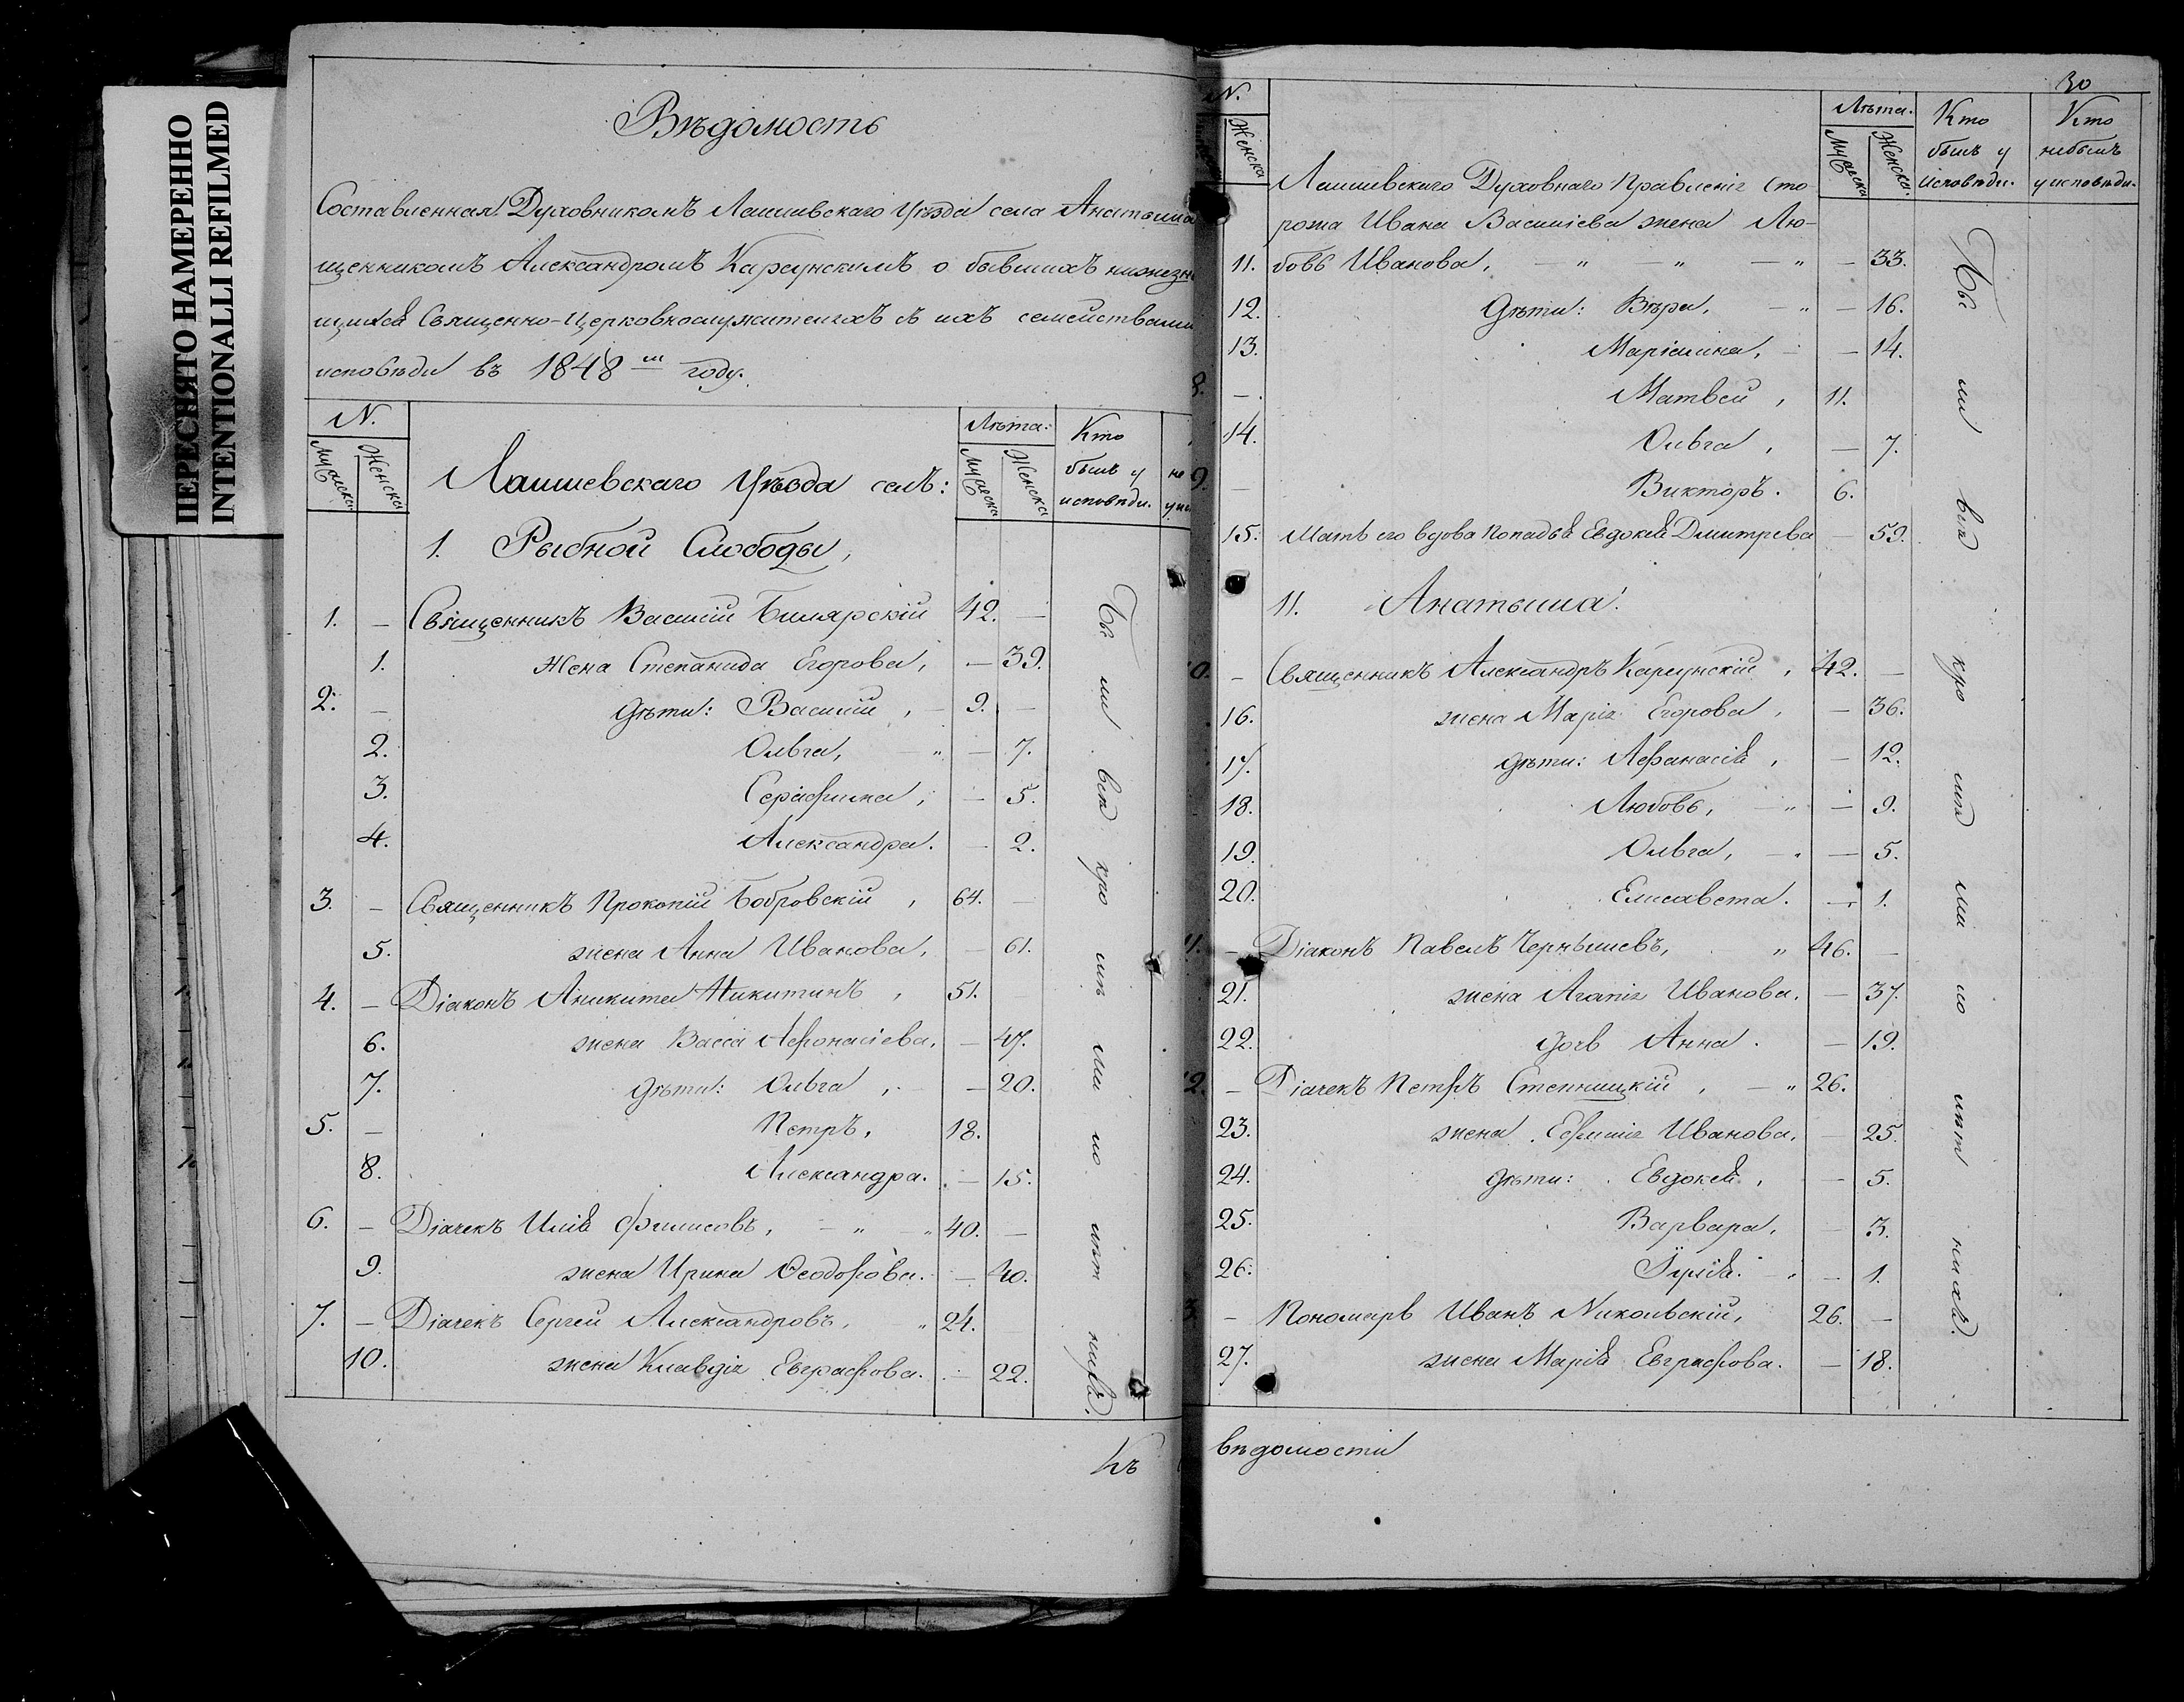 ПЕРЕСНЯТО НАМЕРЕННО
INTENTIONALLI REFILMED
Вѣдомость
Составленная Духовникомъ Лаишевскаго уѣзда села Анатыша
щенникомъ Александромъ Карсунскимъ о бывшихъ
щихся Священно-Церковнослужителяхъ съ ихъ семействами
исповѣди въ 1848 м году.
N. Лѣта: Кто
Мужеска Женска Мужеска Женска былъ у не
исповѣди.
Лаишевскаго уѣзда селъ:
1. Рыбной Слободы,
1. — Священникъ Василій Билярскій 42. —
1. Жена Степанида Егорова, — 39.
2. — Дѣти: Василій, — 9. —
2. Ольга, — " — 7.
3. Серафима, — 5.
4. Александра. — 2.
3. — Священникъ Прокопій Бобровскій, 64. —
5. жена Анна Иванова, — 61.
4. — Діаконъ Аникита Никитинъ, 51.
6. жена Васса Афонасіева, — 47.
7. дѣти: Ольга, — 20.
5. — Петръ, 18.
8. Александра. — 15.
6. — Діачекъ Илія Филисовъ, — " — " 40. —
9. жена Ирина Ѳеодорова. — 40.
7. — Діачекъ Сергей Александровъ, " 24. —
10. жена Клавдія Евграфова. — 22.
Бы ли всѣ кро мѣ ма ло лѣт нихъ.
Къ
30
N. Лѣта. Кто Кто
Женска Мужеска Женска. былъ у небылъ
исповѣди. у исповѣди.
Лаишевскаго Духовнаго Правленія Сто
рожа Ивана Василіева жена Лю-
11. бовь Иванова, — " — " — " — 33.
12. Дѣти: Вѣра, — " — 16.
13. Маріамна, — — 14.
8. — Матвей, 11.
14. Ольга, — 7.
9. — Викторъ. 6.
15. Мать его вдова попадья Евдокія Дмитрева — 59.
11. Анатыша.
10. — Священникъ Александръ Карсунскій, 42. —
16. жена Марія Егорова, — 36.
17. дѣти: Афанасія, — 12.
18. Любовь, — " — 9.
19. Ольга, — " — 5.
20. Елисавета. — 1.
11. — Діаконъ Павелъ Чернышевъ, " 46. —
21. жена Агапія Иванова. — 37.
22. дочь Анна. — 19.
12. — Діачекъ Петръ Степницкій, — " 26.
23. жена Ефимія Иванова, — 25.
24. дѣти: Евдокія, — 5.
25. Варвара, — 3.
26. Іулія. — " — 1.
13. — Пономарь Иванъ Никольскій, 26. —
27. жена Марія Евграфова. — 18.
Бы ли всѣ кро мѣ ма ло лѣт нихъ.
вѣдомости